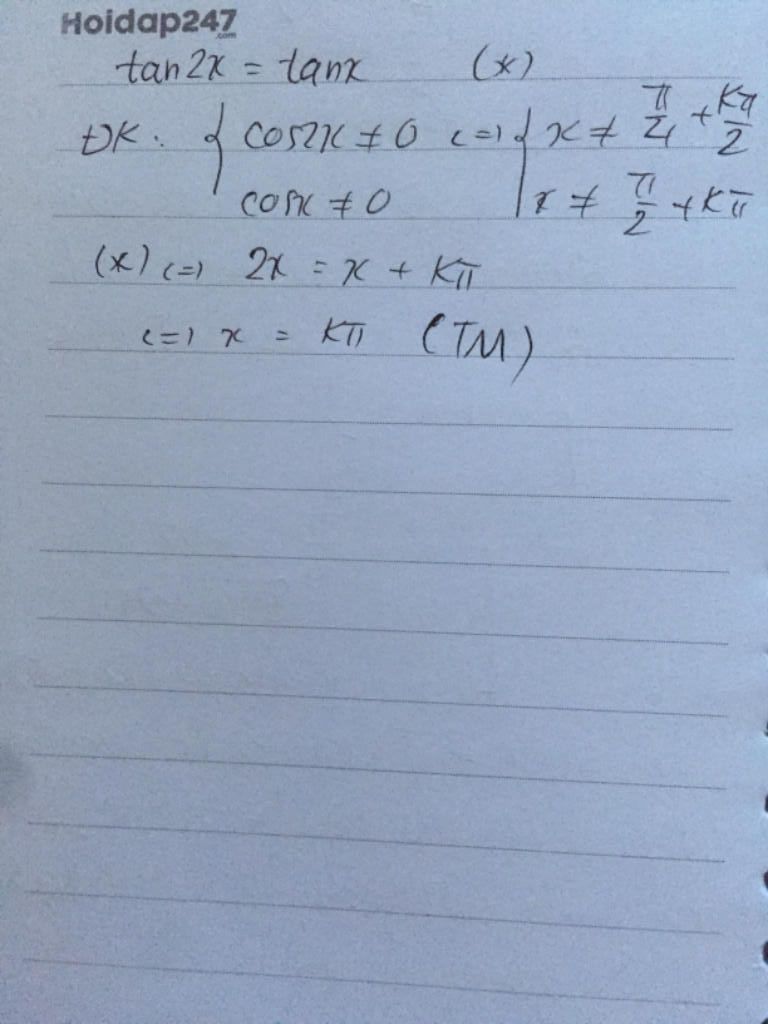 Hoidap247
.com
tan2x = tanx (*)
ĐK: { cos2x ≠ 0 <=> { x ≠ π/4 + kπ/2
cosx ≠ 0 x ≠ π/2 + kπ
(*) <=> 2x = x + kπ
<=> x = kπ (TM)